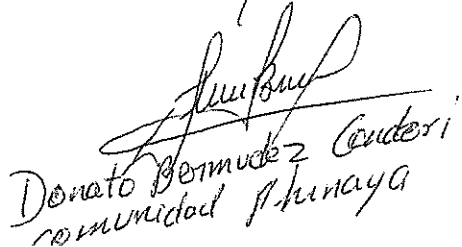 Donato Bermudez Condori
comunidad Phinaya